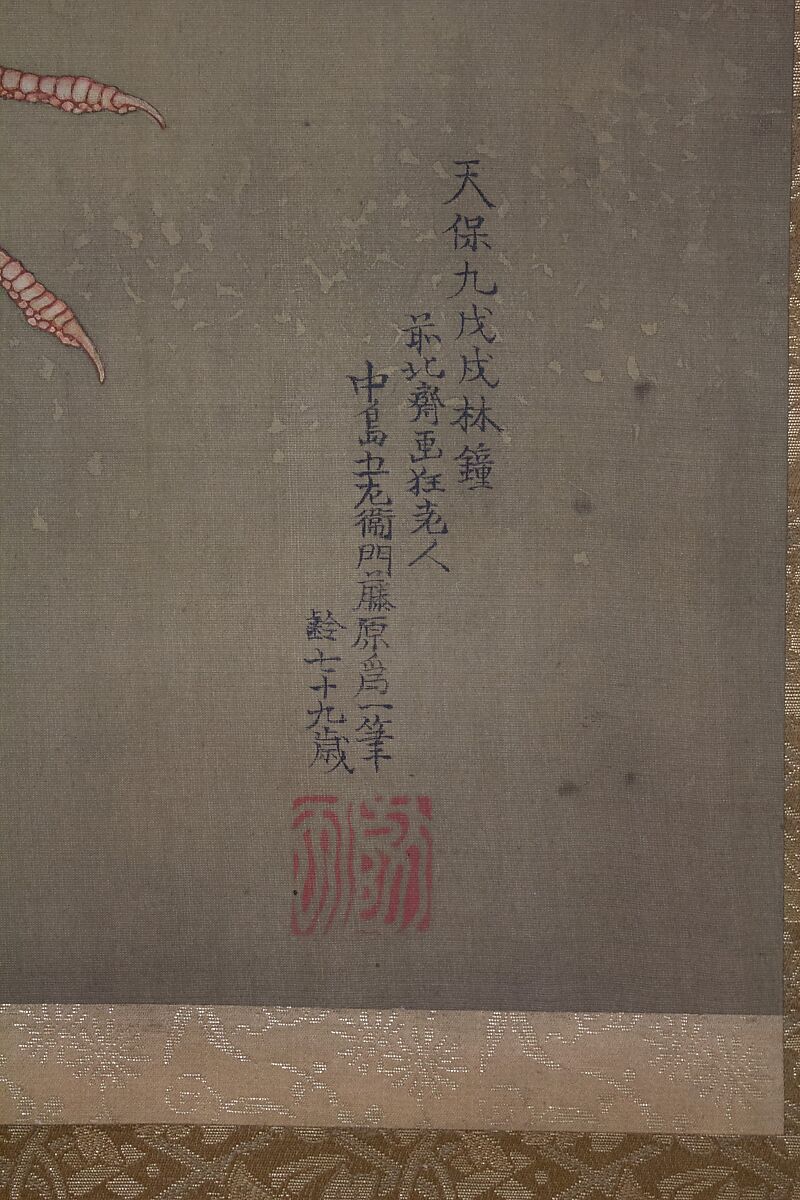 天保九戊戌林鐘
前北斎画狂老人
中島五左衛門藤原為一筆
齢七十九歳